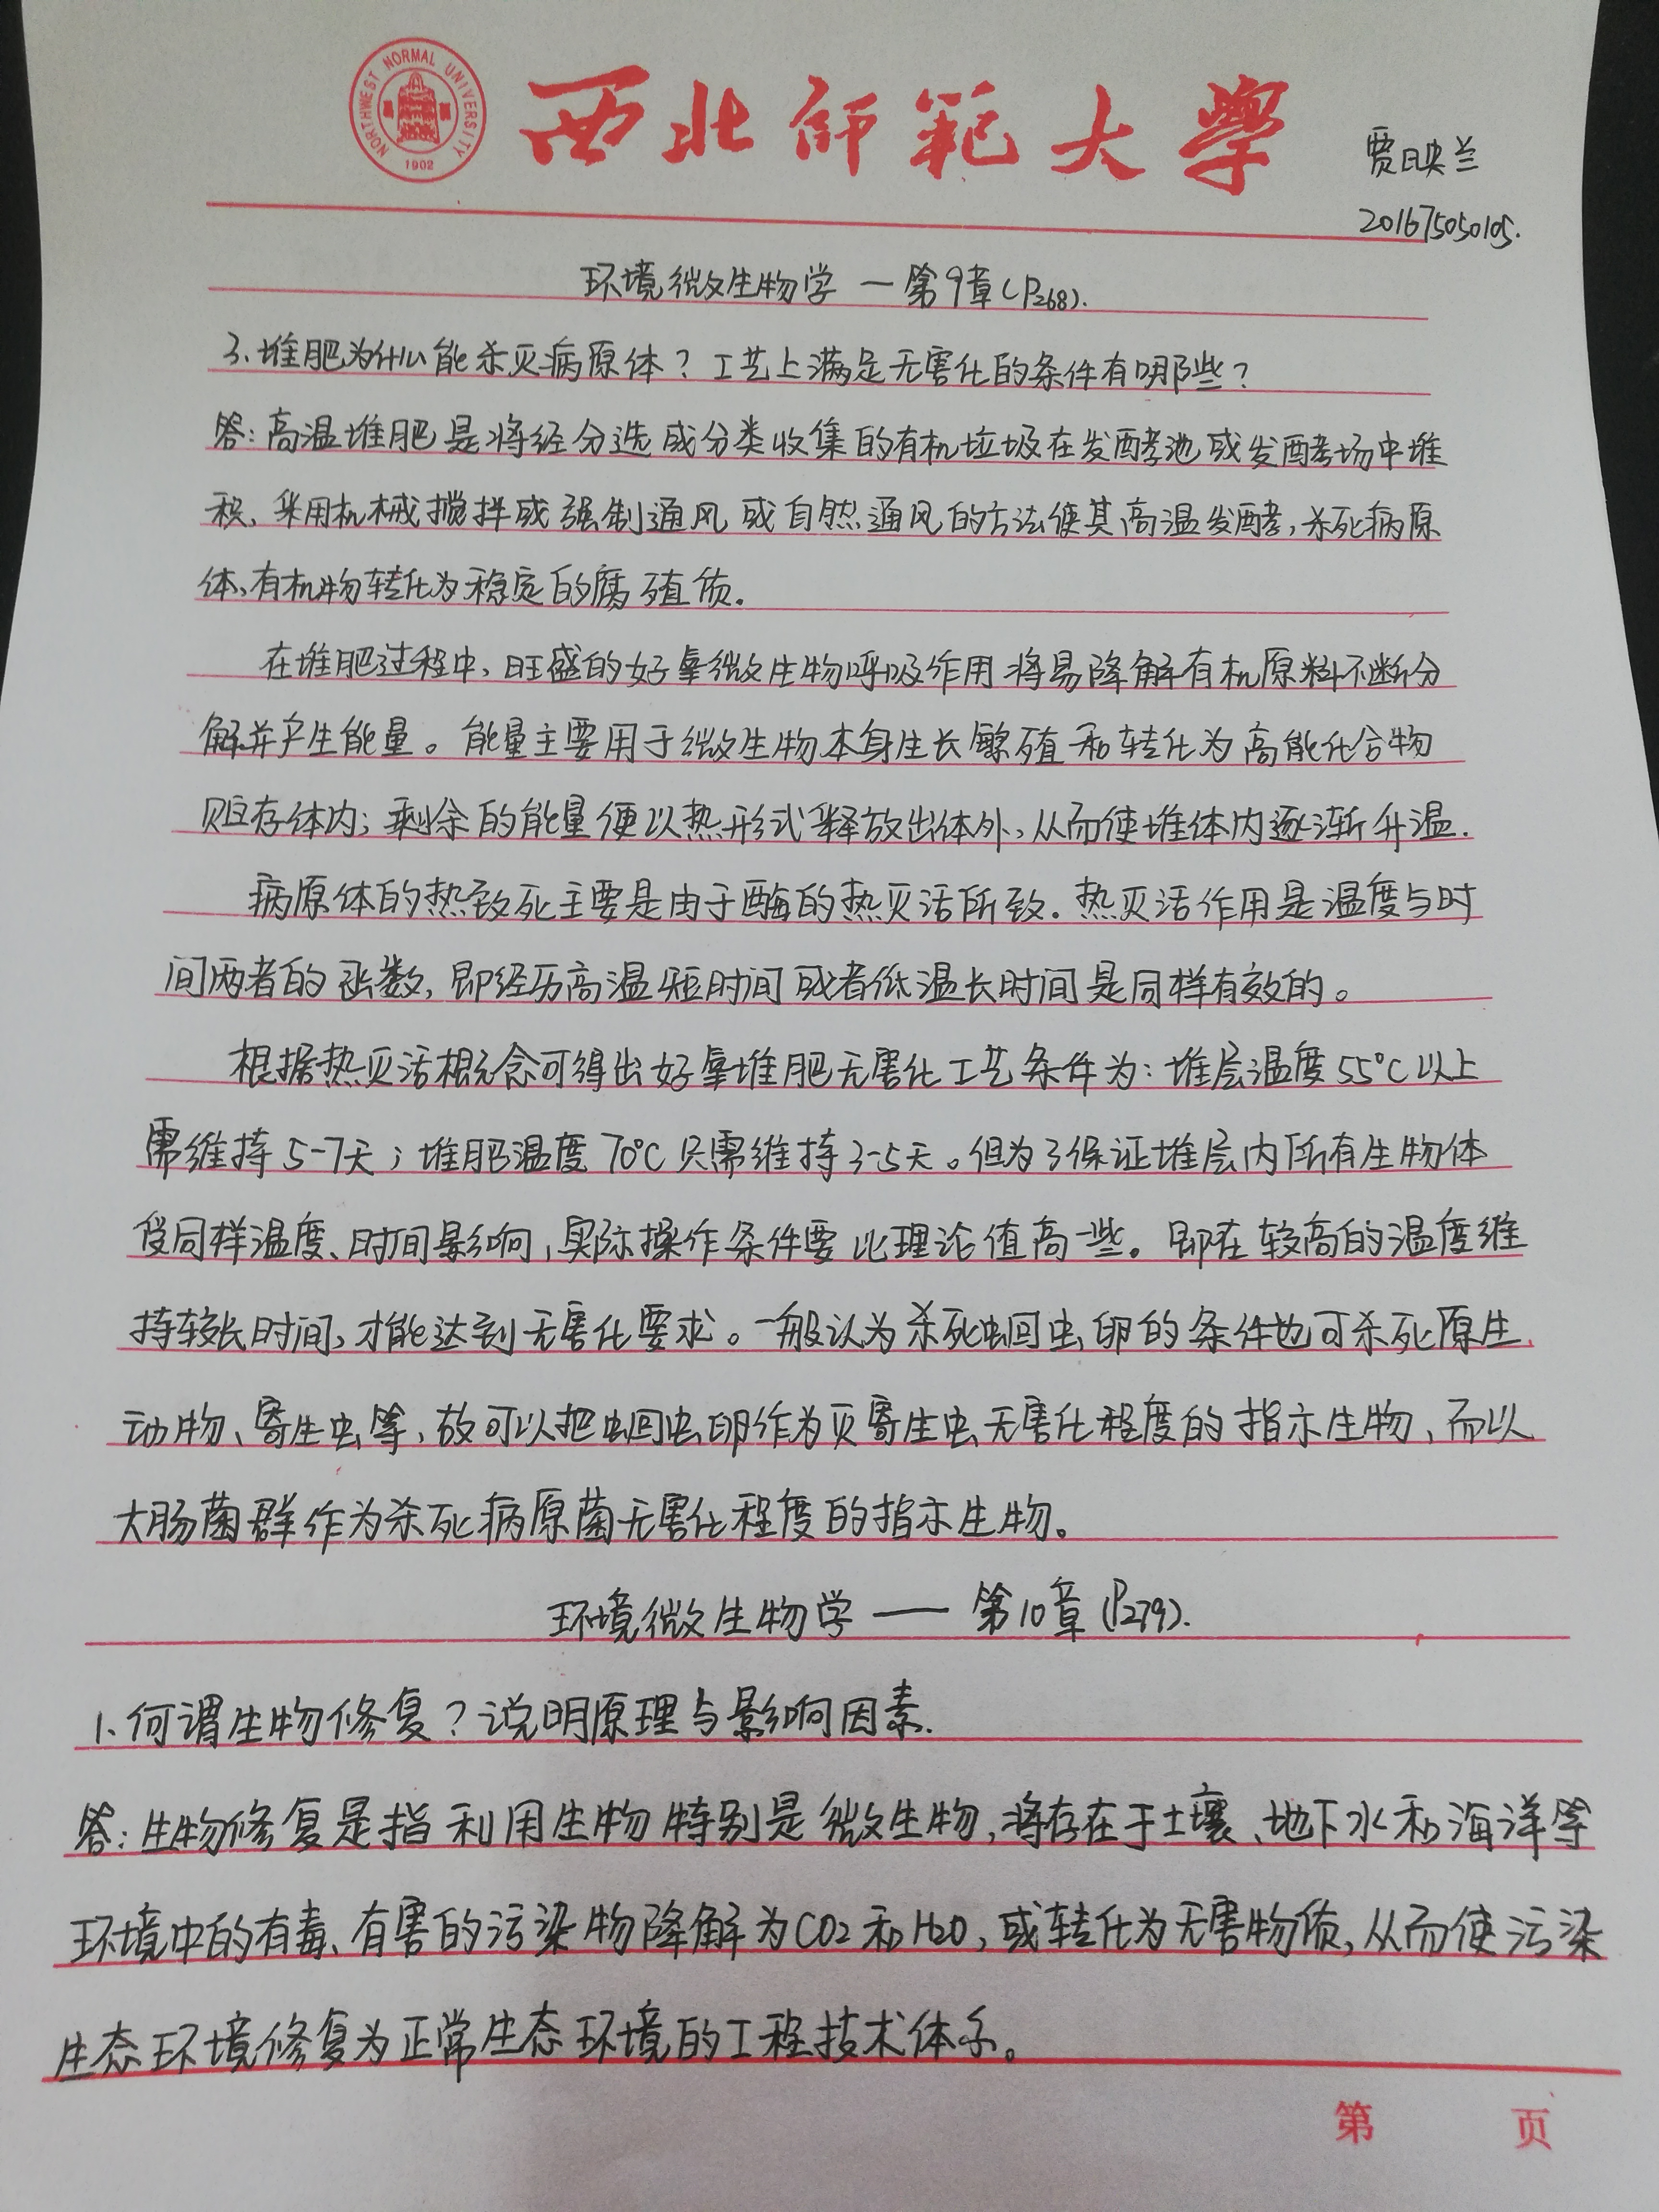 NORTHWEST NORMAL UNIVERSITY
1902
西北师范大学
贾映兰
201675050105.
环境微生物学 — 第9章(P268).
3、堆肥为什么能杀灭病原体？工艺上满足无害化的条件有哪些？
答：高温堆肥是将经分选或分类收集的有机垃圾在发酵池或发酵场中堆
积、采用机械搅拌或强制通风或自然通风的方法使其高温发酵，杀死病原
体、有机物转化为稳定的腐殖质.
在堆肥过程中、旺盛的好氧微生物呼吸作用将易降解有机原料不断分
解并产生能量。能量主要用于微生物本身生长繁殖和转化为高能化合物
贮存体内；剩余的能量便以热形式释放出体外、从而使堆体内逐渐升温.
病原体的热致死主要是由于酶的热灭活所致.热灭活作用是温度与时
间两者的函数，即经历高温短时间或者低温长时间是同样有效的。
根据热灭活概念可得出好氧堆肥无害化工艺条件为：堆层温度55℃以上
需维持5-7天；堆肥温度70℃只需维持3-5天。但为了保证堆层内所有生物体
受同样温度、时间影响，实际操作条件要比理论值高一些。即在较高的温度维
持较长时间、才能达到无害化要求。一般认为杀死蛔虫卵的条件也可杀死原生
动物、寄生虫等、故可以把蛔虫卵作为灭寄生虫无害化程度的指示生物、而以
大肠菌群作为杀死病原菌无害化程度的指示生物。
环境微生物学 —— 第10章(P279).
1、何谓生物修复？说明原理与影响因素.
答：生物修复是指利用生物特别是微生物，将存在于土壤、地下水和海洋等
环境中的有毒、有害的污染物降解为CO2和H2O，或转化为无害物质，从而使污染
生态环境修复为正常生态环境的工程技术体系。
第 页